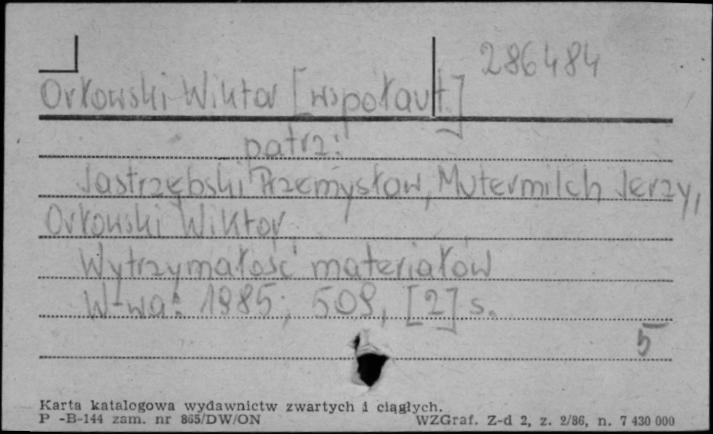 286484
Orłowski Wiktor [współaut.]
patrz:
Jastrzębski Przemysław, Mutermilch Jerzy,
Orłowski Wiktor
Wytrzymałość materiałów
W-wa: 1985; 509, [2] s.
5
Karta katalogowa wydawnictw zwartych i ciągłych.
P -B-144 zam. nr 865/DW/ON WZGraf. Z-d 2, z. 2/86, n. 7 430 000